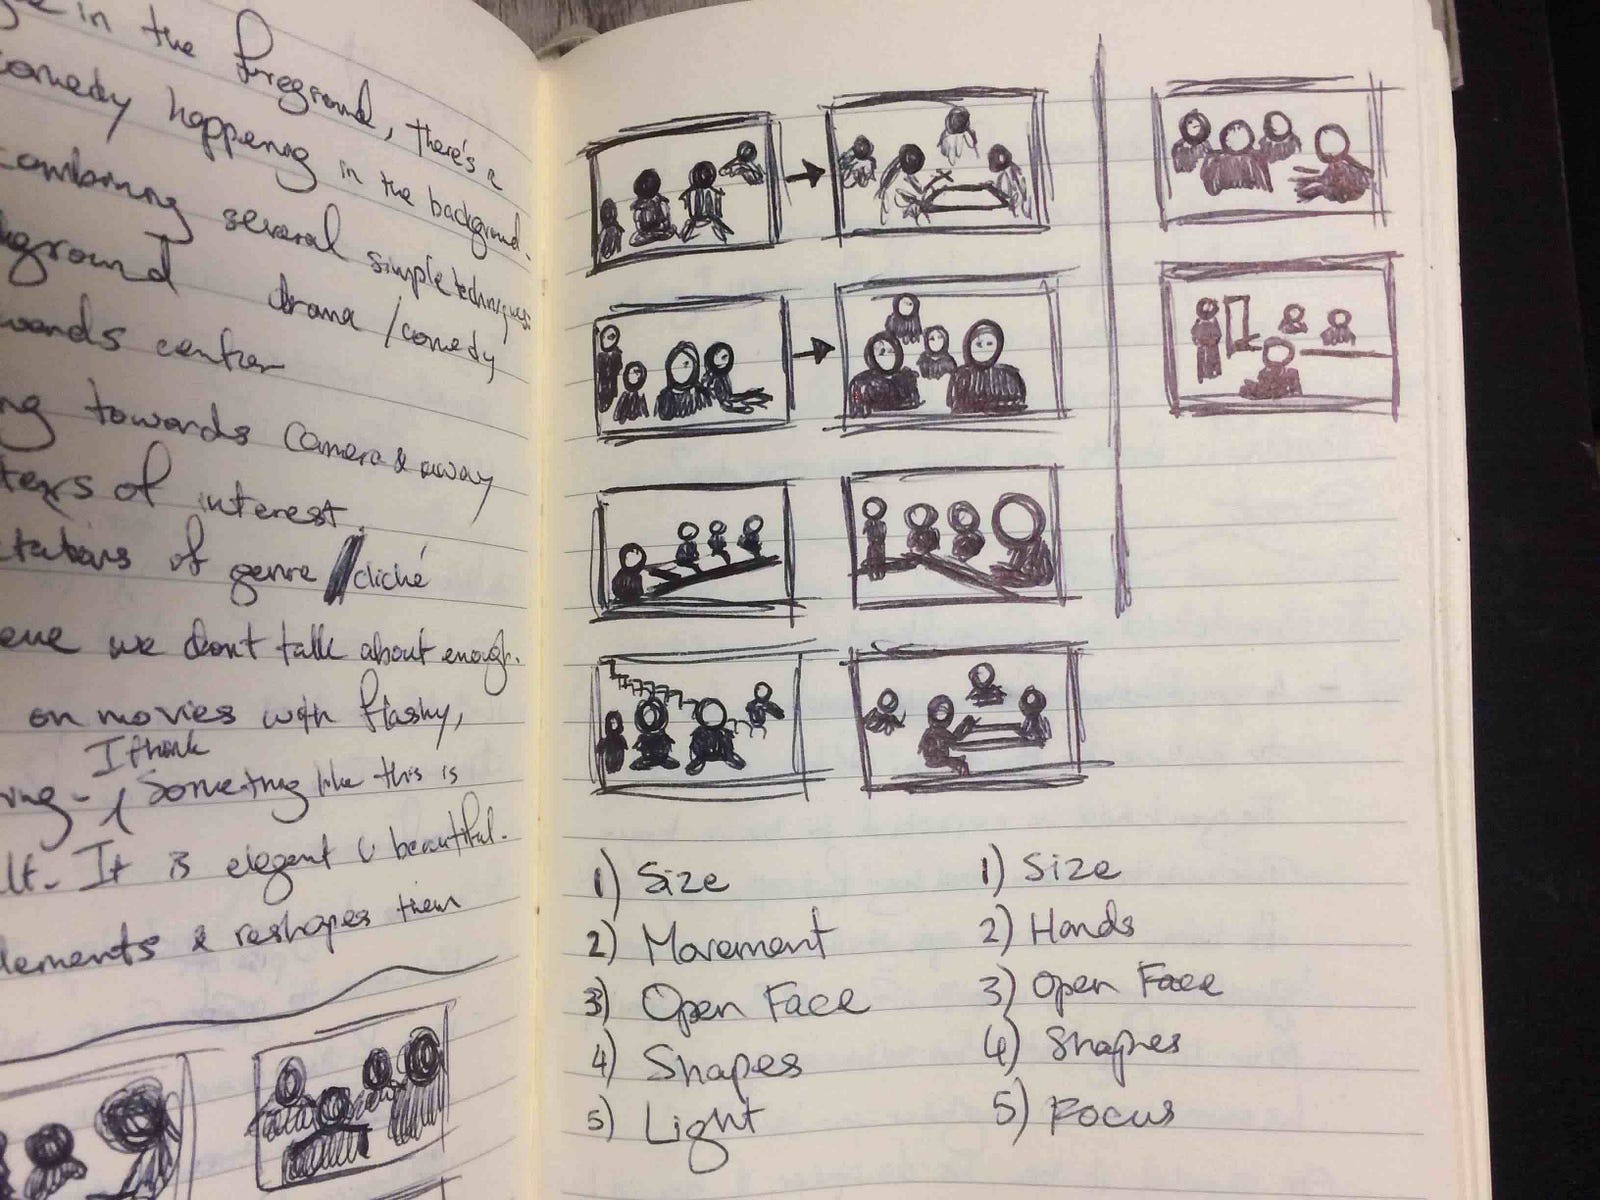 in the foreground, there's a
comedy happening in the background.
combining several simple techniques:
drama / comedy
centre
towards camera & away
of interest.
of genre / cliché
we don't talk about enough.
on movies with flashy,
I think
Something like this is
It is elegant & beautiful.
elements & reshapes them
1) Size
2) Movement
3) Open Face
4) Shapes
5) Light
1) Size
2) Hands
3) Open Face
4) Shapes
5) Focus